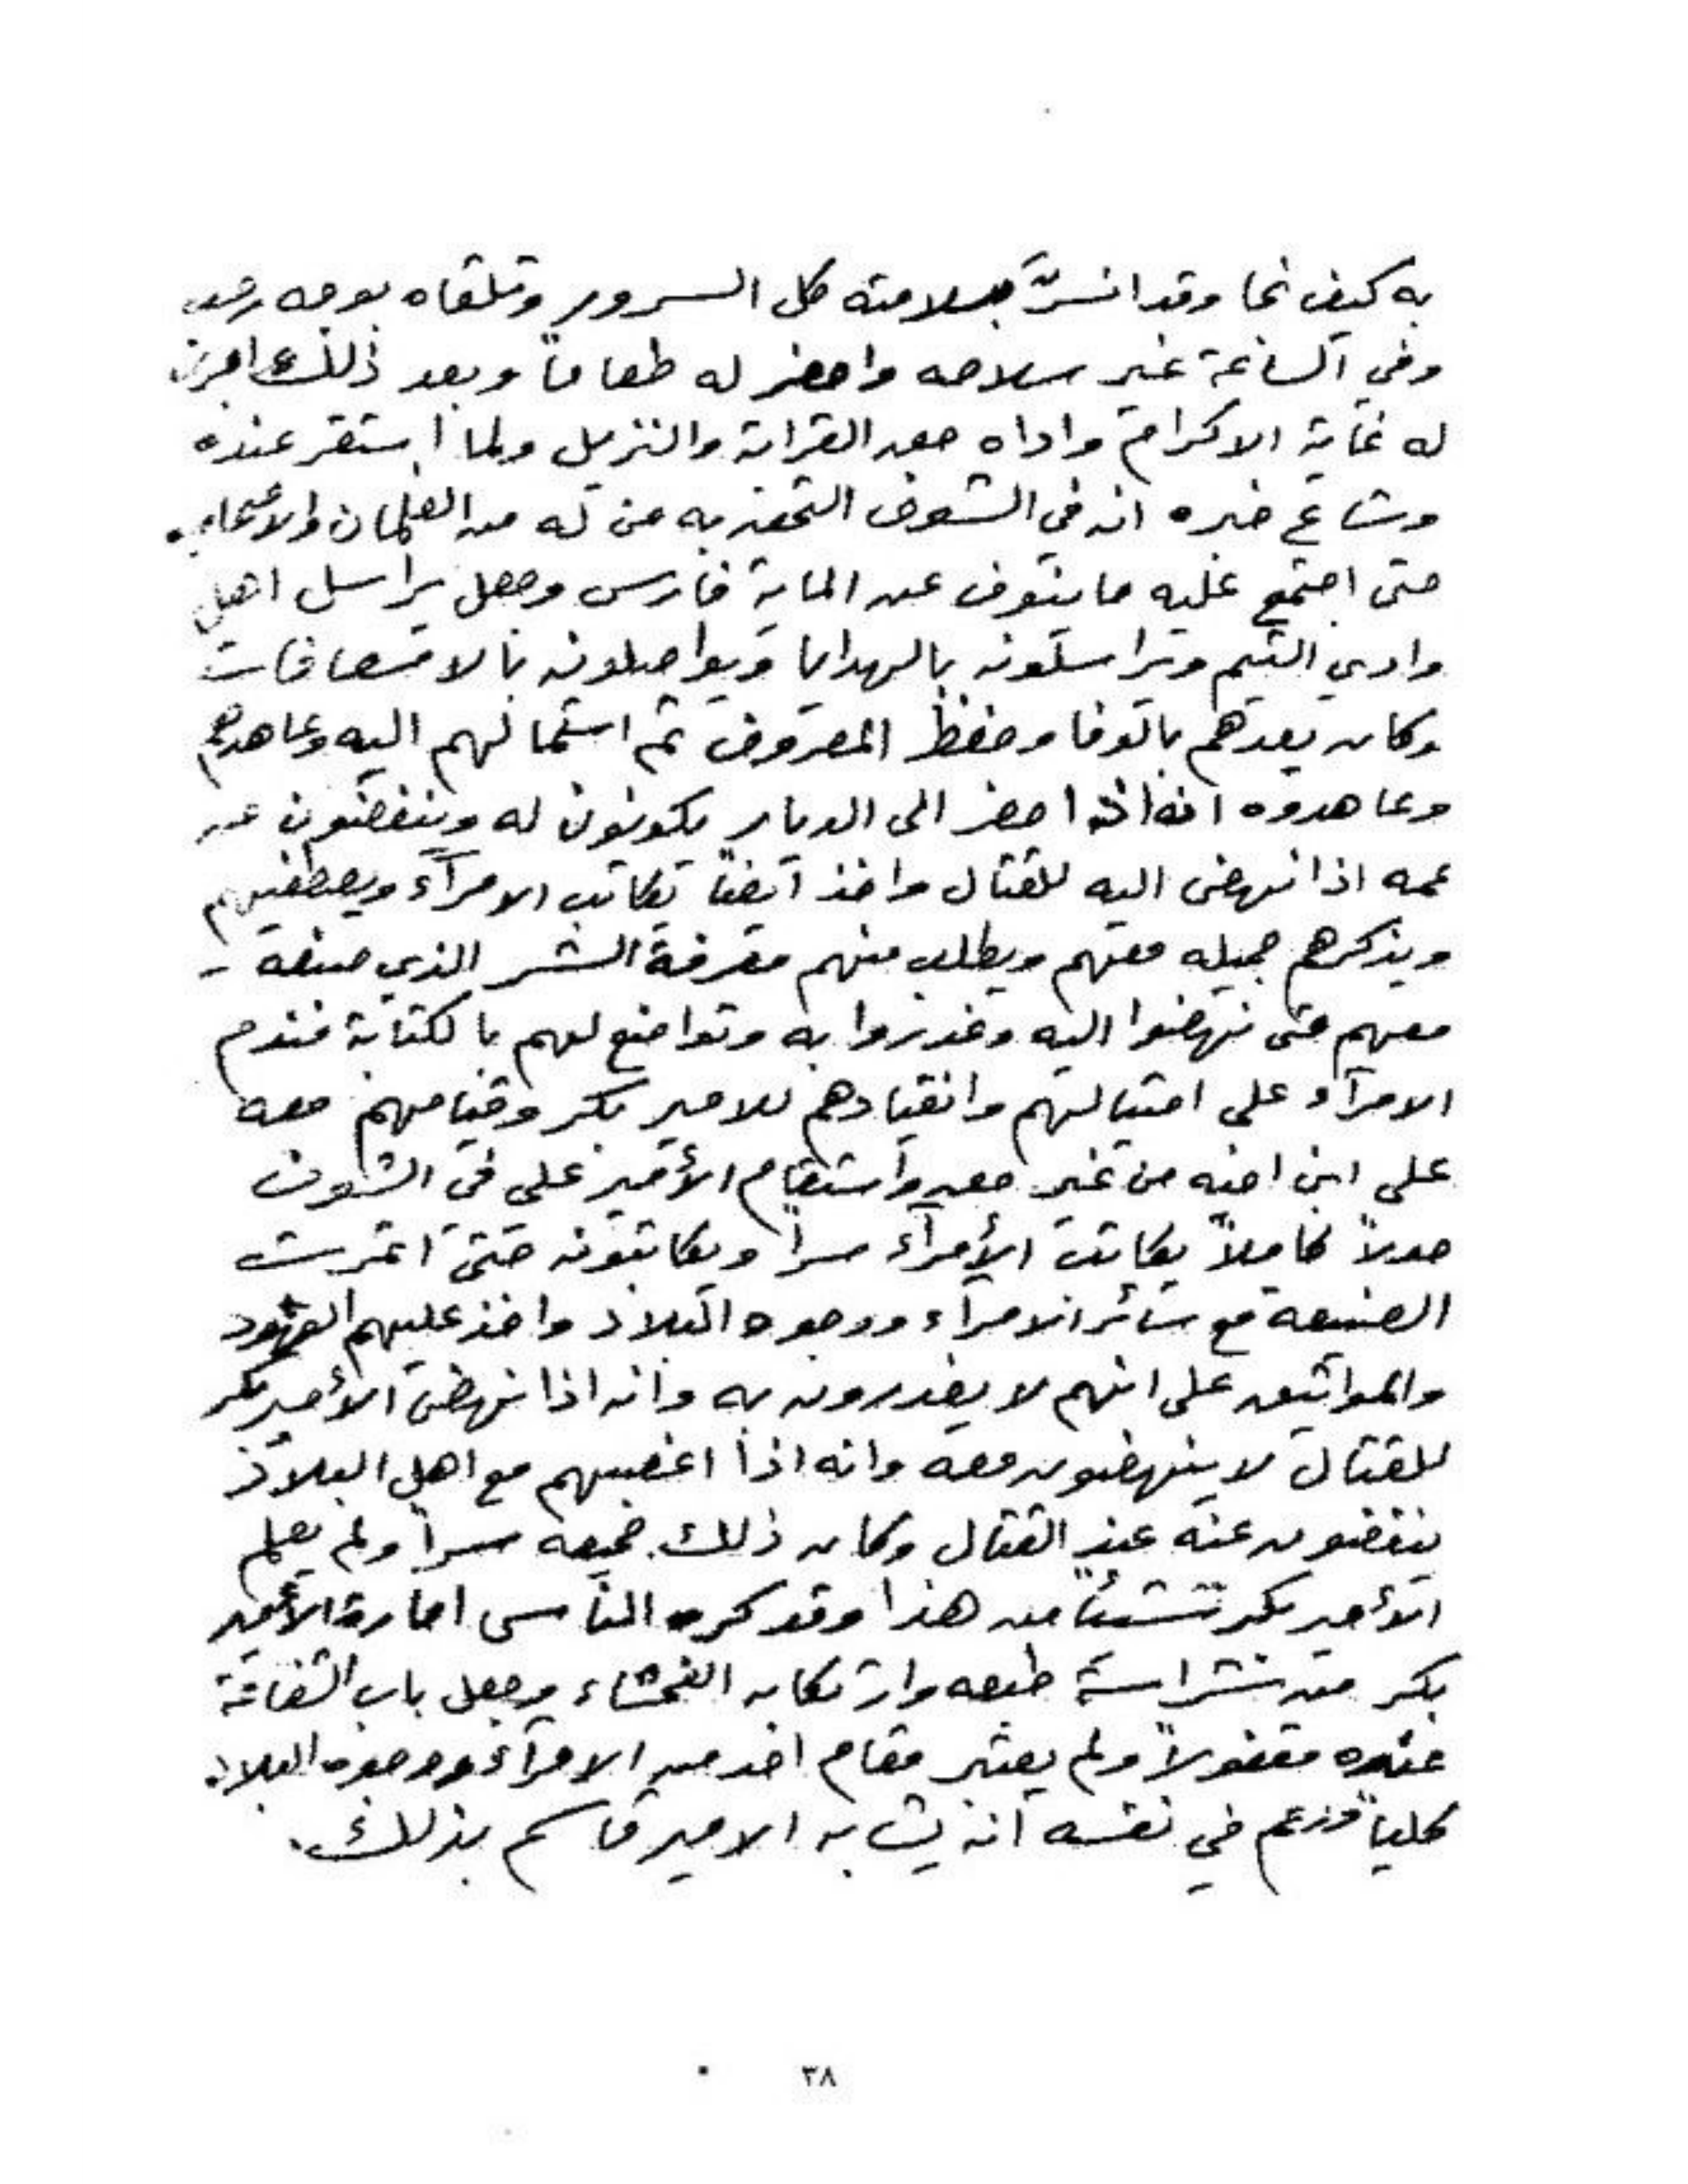 به كيف نجا وقد انسرّ بسلامته كل السرور وتلقاه بوجه رحب
وفي الساعة غير سلاحه واحضر له طعاماً وبعد ذلك اجرى
له غاية الاكرام واداه حق القراية والنزيل ولما استقر عنده
وشاع خبره انه في الشوف التحق به من له من الغلمان والاصحاب
حتى اجتمع عليه ما ينوف عن الماية فارس وجعل يراسل اهل
وادي التيم ويراسلونه بالهدايا ويواصلونه بالاسعافات
وكان يعدهم بالوفا وحفظ المعروف ثم استمالهم اليه وعاهدهم
وعاهدوه انه اذا حضر الى الديار يكونون له وينفضون عن
عمه اذا نهض اليه للقتال واخذ ايضاً يكاتب الامرآء ويصطفيهم
ويذكرهم جميله معهم ويطلب منهم معرفة الشر الذي صنعه
معهم حتى نهضوا اليه وغدروا به وتواضع لهم بالكتابة فندم
الامرآء على امتيالهم وانقيادهم للامير بكر وقيامهم معه
على ابن اخيه من غير حق واستقام الأمير علي في الشوف
حولاً كاملاً يكاتب الأمرآء سراً ويكاتبونه حتى اثمرت
الصنيعة مع سائر الامرآء ووجوه البلاد واخذ عليهم العهود
والمواثيق على انهم لا يغدرون به وانه اذا نهض الأمير بكر
للقتال لا ينهضون معه وانه اذا اغصبهم مع اهل البلاد
ينفضون عنه عند القتال وكان ذلك جميعه سراً ولم يعلم
الأمير بكر شيئاً من هذا وقد كره الناس امارة الأمير
بكر من شراسة طبعه وارتكابه الفحشاء وجعل باب الشفاعة
عنده مقفولاً ولم يعتبر مقام احد من الامرآء ووجوه البلاد
كلياً وزعم في نفسه انه يشابه الامير قاسم بذلك.
٣٨